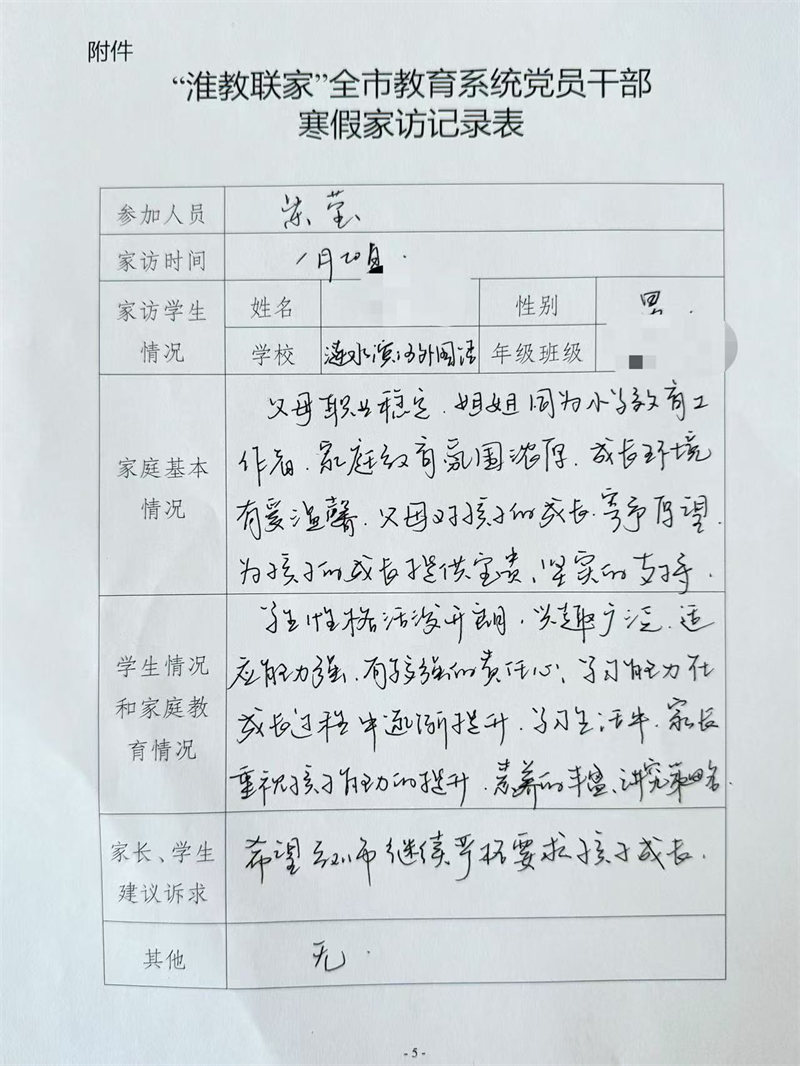 附件
“淮教联家”全市教育系统党员干部
寒假家访记录表
参加人员 莹
家访时间 1月20日.
家访学生情况 姓名 性别 男.
学校 涟水滨河外国语 年级班级
家庭基本情况
父母职业稳定，姐姐同为小学教育工
作者，家庭教育氛围浓厚，成长环境
有爱温馨，父母对孩子的成长寄予厚望，
为孩子的成长提供宝贵、坚实的支持。
学生情况和家庭教育情况
学生性格活泼开朗，兴趣广泛，适
应能力强，有较强的责任心，学习能力在
成长过程中逐渐提升，学习生活中，家长
重视孩子能力的提升，素养的丰盈，讲究策略。
家长、学生建议诉求
希望老师继续严格要求孩子成长。
其他 无.
- 5 -